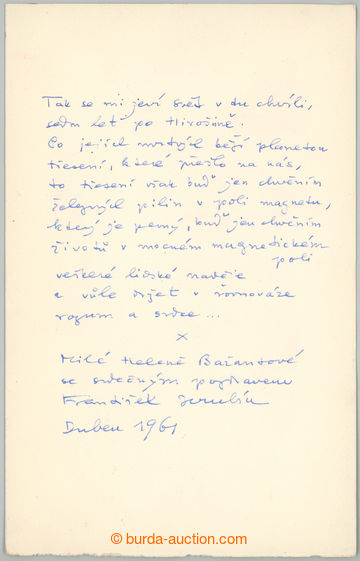 Tak se mi jeví svět v tu chvíli,
sedm let po Hirošimě.
Co jejich mrtvých běží planetou
třesení, které přešlo na nás,
to třesení však buď jen chvěním
železných pilin v poli magnetu,
který je pevný, buď jen chvěním
životů v mocném magnetickém
poli
veškeré lidské naděje
a vůle držet v rovnováze
rozum a srdce ...
x
Milé Heleně Bažantové
se srdečným pozdravem
František Hrubín
Duben 1961
© burda-auction.com